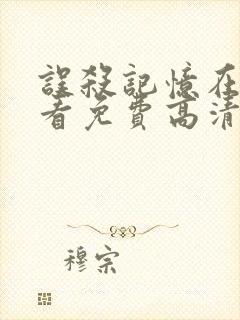 誤殺記憶在
看免費高清
穆宗